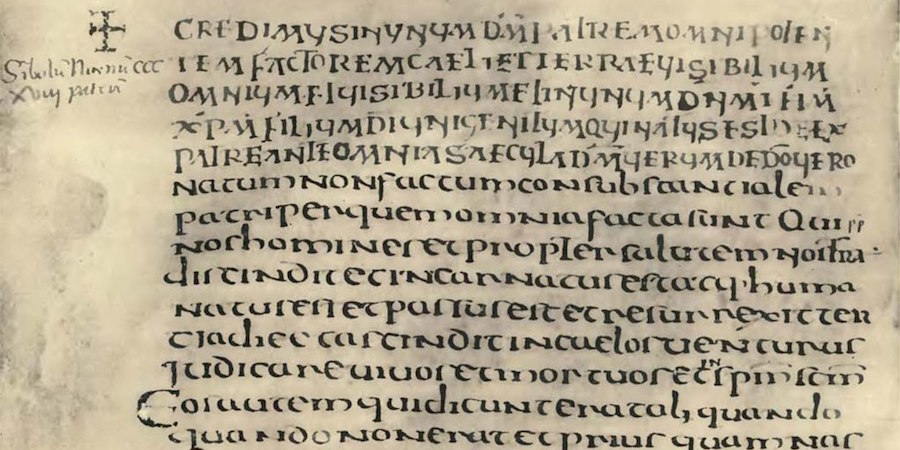 CREDIMUS IN UNUM DM PATREM OMNIPOTEN
TEM FACTOREM CAELI ET TERRAE UISIBILIUM
OMNIUM ET IUISIBILIUM ET IN UNUM DNM IHM
XPM FILIUM DI UNIGENITUM QUI NATUS EST DE EX
PATRE ANTE OMNIA SAECULA DM UERUM DE DO UERO
natum non factum consubstantialem
patri per quem omnia facta sunt Qui pp
nos homines et propter salutem nostra
discindit et incarnatus est acp huma
natus est et passus est et resurrexit ter
tia die et ascindit in caelos uenturus
iudicare uiuos et mortuos et IN spm scm
Eos autem qui dicunt erat alq quando
quando non erat et prius quam nas